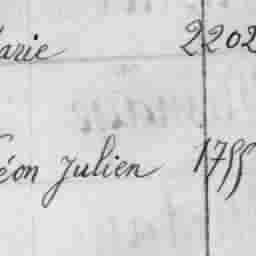 arie 2202
éon Julien 1755